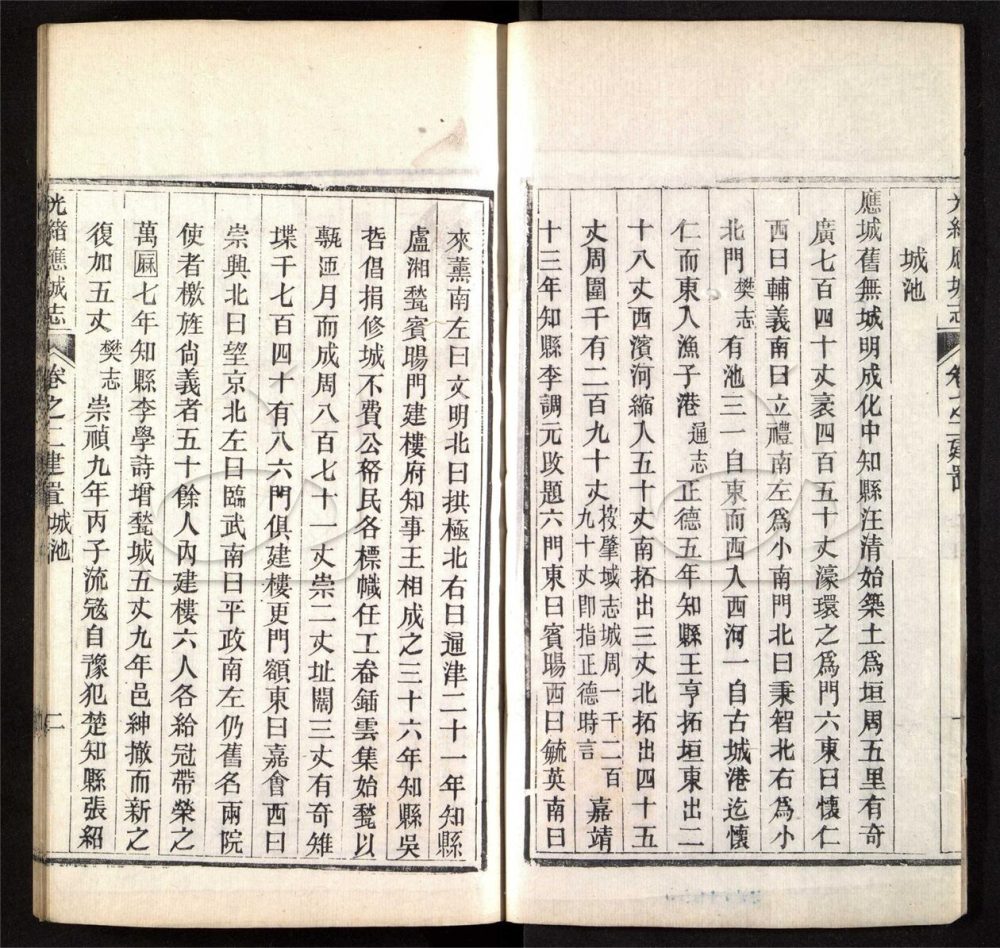 光緒應城志 卷之二建置
城池
應城舊無城明成化中知縣汪清始築土爲垣周五里有奇
廣七百四十丈袤四百五十丈濠環之爲門六東曰懷仁
西曰輔義南曰立禮南左爲小南門北曰秉智北右爲小
北門樊志有池三一自東而西入西河一自古城港迄懷
仁而東入漁子港通志正德五年知縣王亨拓垣東出二
十八丈西濱河縮入五十丈南拓出三丈北拓出四十五
丈周圍千有二百九十丈按肇域志城周一千二百九十丈卽指正德時言嘉靖
十三年知縣李調元改題六門東曰賓暘西曰毓英南曰
來薰南左曰文明北曰拱極北右曰通津二十一年知縣
盧湘甃賓暘門建樓府知事王相成之三十六年知縣吳
悊倡捐修城不費公帑民各標幟任工畚鍤雲集始甃以
甎迊月而成周八百七十一丈崇二丈址闊三丈有奇雉
堞千七百四十有八六門俱建樓更門額東曰嘉會西曰
崇興北曰望京北左曰臨武南曰平政南左仍舊名兩院
使者檄旌尙義者五十餘人內建樓六人各給冠帶榮之
萬厤七年知縣李學詩增甃城五丈九年邑紳撤而新之
復加五丈樊志崇禎九年丙子流寇自豫犯楚知縣張紹
光緒應城志 卷之二建置 城池 二